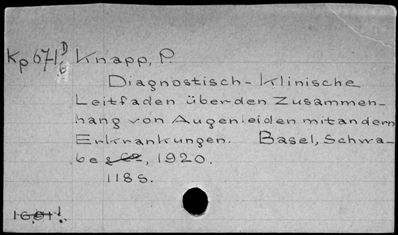 Kp 671 D/6 Knapp, P.
Diagnostisch-Klinische
Leitfaden über den Zusammen-
hang von Augenleiden mit andern
Erkrankungen. Basel, Schwa-
be & Co, 1920.
118 S.